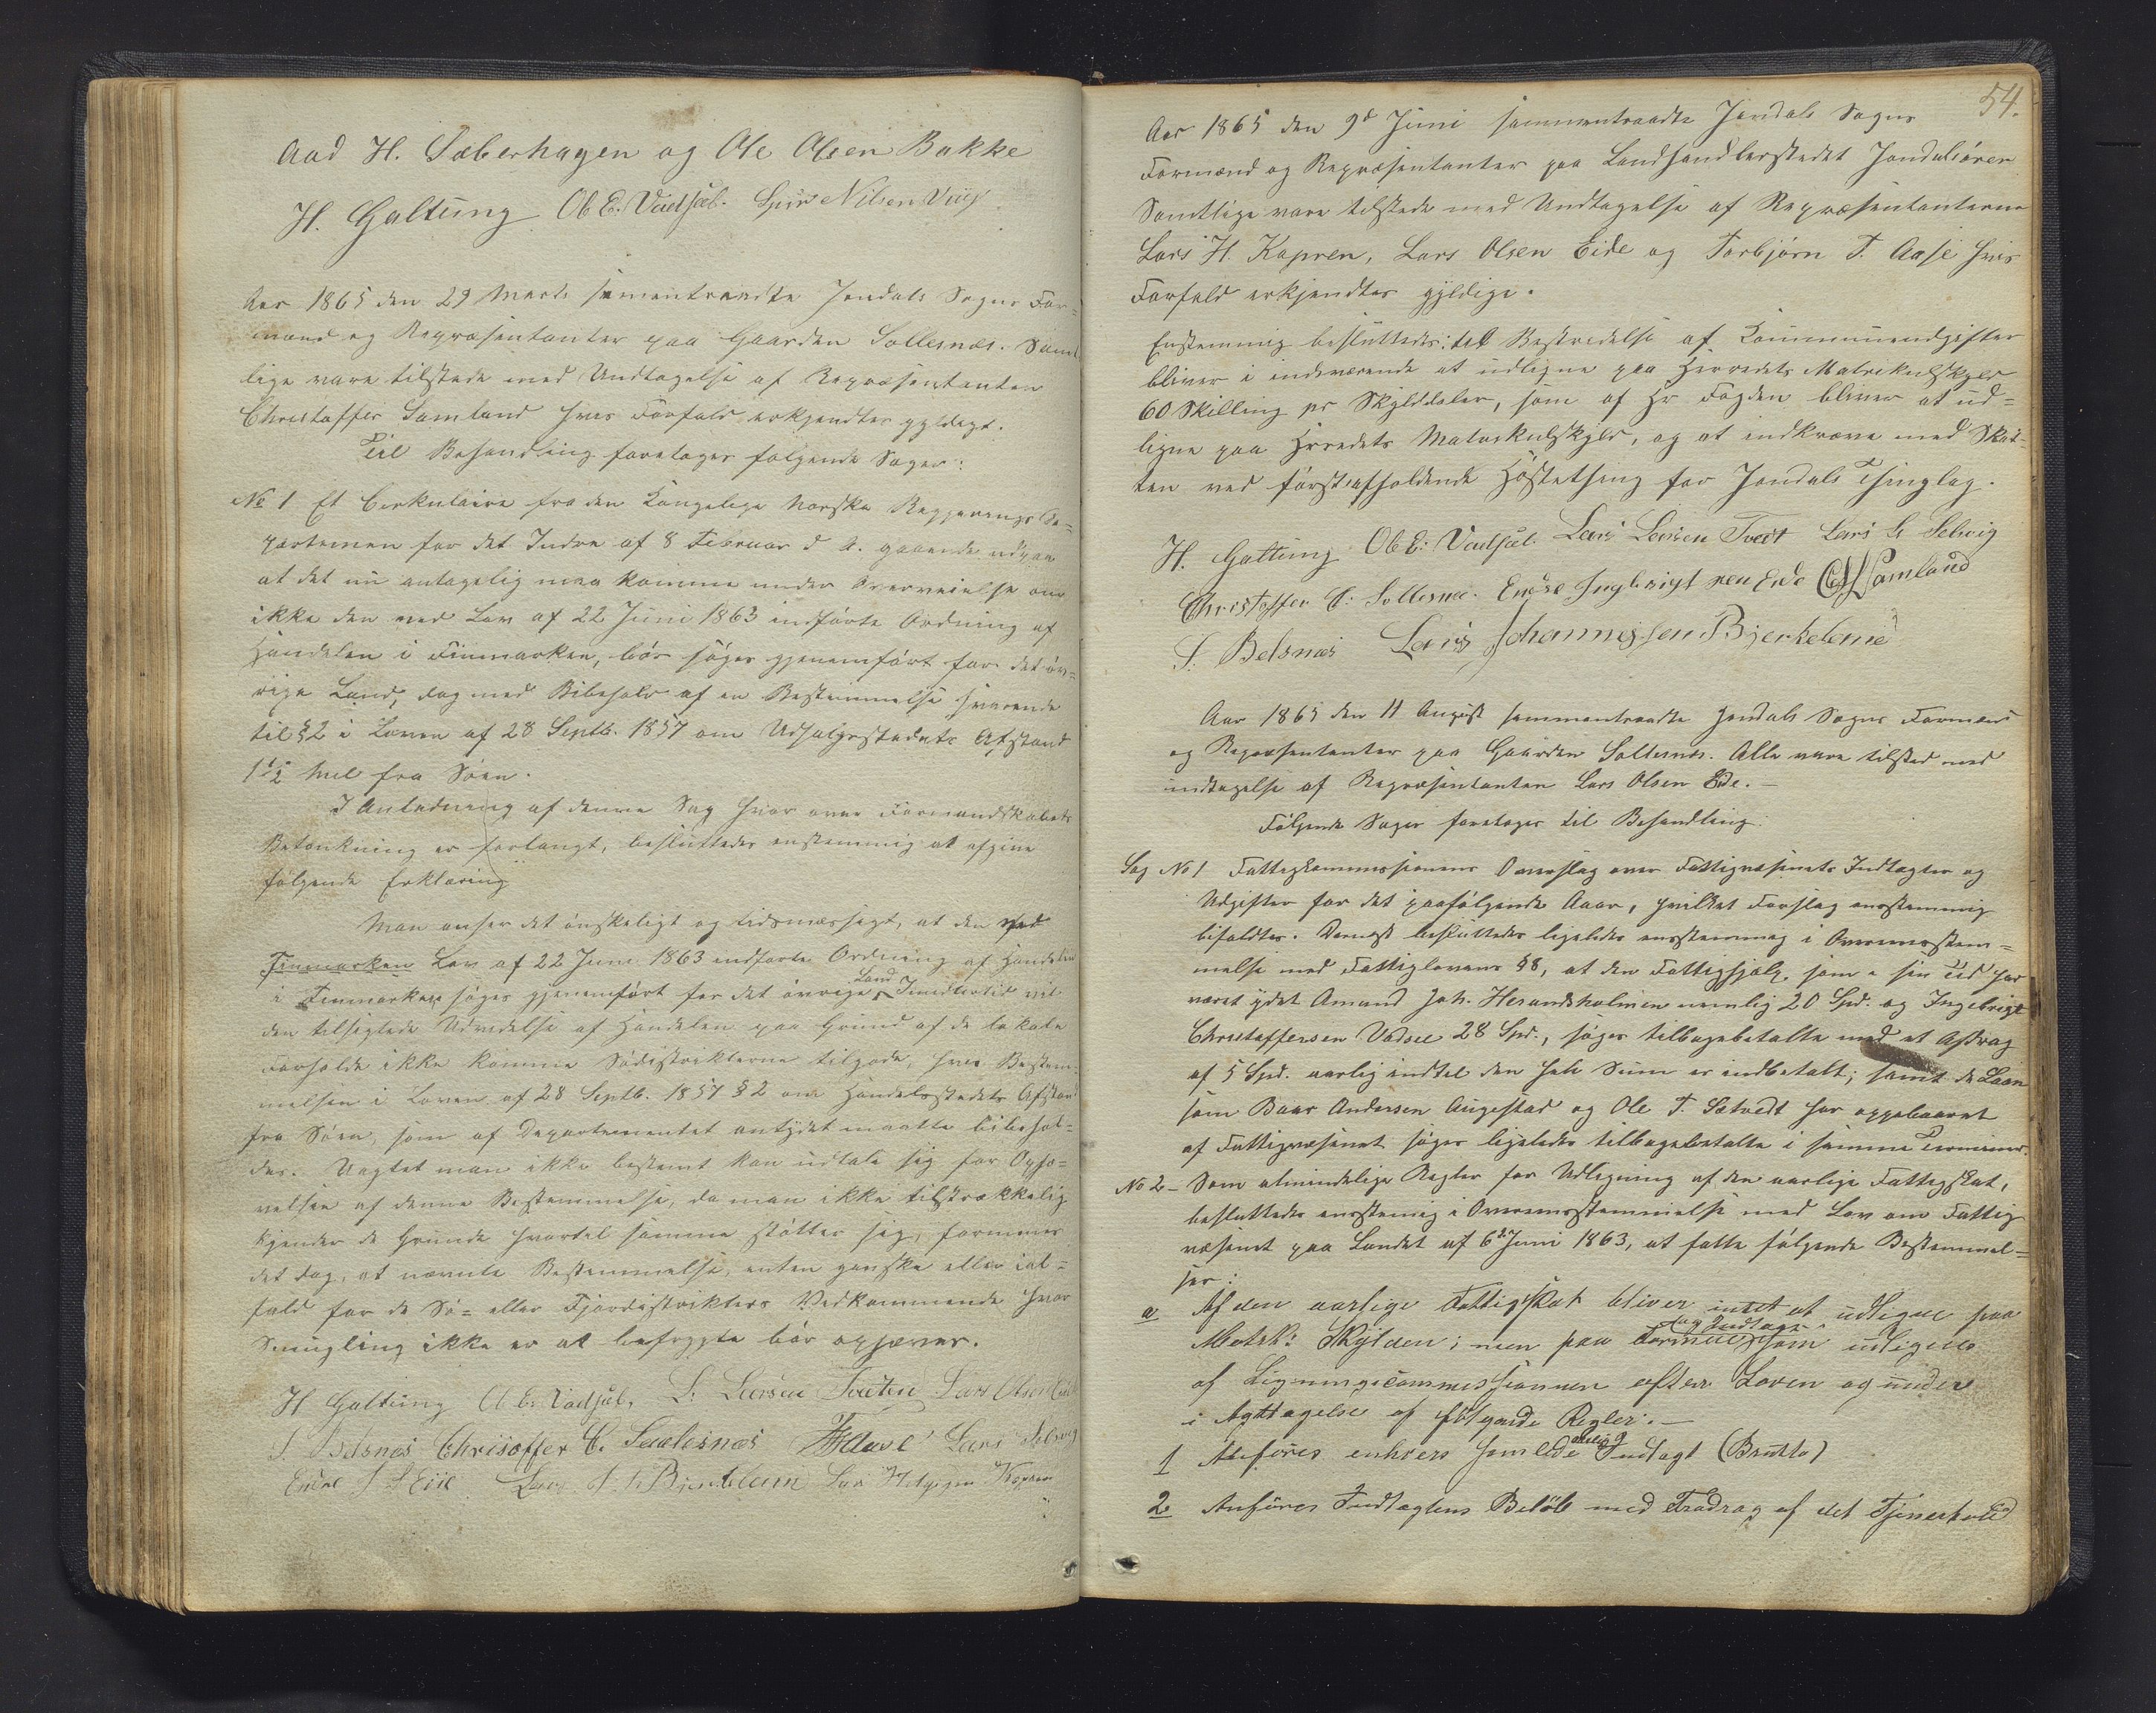 Aad H. Sæberhagen og Ole Olsen Bakke
H. Galtung Ol E. Vadsæl. Nilsen
Aar 1865 den 29 Marts sammentraadte Jondals Sogns For=
mænd og Repræsentanter paa Gaarden Sollesnæs. Samt
lige vare tilstede med Undtagelse af Repræsentanten
Christoffer Samland hvis Forfald erkjendtes gyldigt.
Til Behandling foretages følgende Sager:
No 1 Et Cirkulaire fra den Kongelige Norske Regjerings De=
partemen for det Indre af 8 Februar d. A. gaaende ud paa
at det nu antagelig maa komme under Overveielse om
ikke den ved Lov af 22 Juni 1863 indførte Ordning af
Handelen i Finmarken, bør søges gjenemført for det øv=
rige Land, dog med Bibehold af en Bestemmelse svarende
til § 2 i Loven af 28 Septb. 1857 om Udsalgsstedets Afstand
1 1/2 Miil fra Søen.
I Anledning af denne Sag hvor over Formandskabets
Betænkning er forlangt, besluttedes enstemmig at afgive
følgende Erklæring
Man anser det ønskeligt og tidsmæssigt, at den ved
Finmarken Lov af 22 Juni 1863 indførte Ordning af Handelen
i Finmarken søges gjenemført for det øvrige Land Imidlertid vil
den tilsigtede Udvidelse af Handelen paa Grund af de lokale
Forholde ikke komme Sødistrikterne tilgode, hvis Bestem=
melsen i Loven af 28 Septb. 1857 § 2 om Handelsstedets Afstand
fra Søen, som af Departementet antydet maatte bibehol=
des. Uagtet man ikke bestemt kan udtale sig for Ophæ=
velsen af denne Bestemmelse, da man ikke tilstrækkelig
kjender de Grunde hvortil samme støtter sig, formenes
det dog, at nævnte Bestemmelse, enten ganske eller ial=
fald for de Sø= eller Fjorddistrikters Vedkommende hvor
Smugling ikke er at befrygte bør ophæves.
H Galtung Ol E. Vadsæl, L. Larsen Tveten Lars Olsen
S. Belsnæs Chrisoffer C. Saalesnæs Lars Selvig
Endre Eide Lars Bjerkeleim Lar Helgesen Kapren
54.
Aar 1865 den 9d Juni sammentraadte Jondals Sogns
Formænd og Repræsentanter paa Landhandlerstedet Jondalsøren
Samtlige vare tilstede med Undtagelse af Repræsentanterne
Lars H. Kapren, Lars Olsen Eide og Torbjørn T. Aase hvis
Forfald erkjendtes gyldige.
Enstemmig besluttedes: til Bestridelse af Kommuneudgifter
bliver i indeværende at udligne paa Herredets Matrikulskyld
60 Skilling pr Skylddaler, som af Hr Fogden bliver at ud=
ligne paa Herredets Matrikulskyld, og at indkræve med Skat=
ten ved førstafholdende Høstething for Jondals Thinglag.
H. Galtung Ol E. Vadsæl. Lars Larsen Tvedt Lars L Selvig
Christoffer C. Sollesnæ. Endre Inglbrigtsen Eide Samland
S. Belsnæs Lars Johannessen Bjerkeleme
Aar 1865 den 11 August sammentraadte Jondals Sogns Formænd
og Repræsentanter paa Gaarden Sollesnæs. Alle vare tilsted med
undtagelse af Repræsentanten Lars Olsen Eide. —
Følgende Sager foretages til Behandling.
Sag No 1 Fattigkommissionens Overslag over Fattigvæsenets Indtægter og
Udgifter for det paafølgende Aar, hvilket Forslag enstemmig
bifaldtes. Dernæst besluttedes ligeledes enstemmig i Overensstem=
melse med Fattiglovens § 8, at den Fattighjælp, som i sin Tid har
været ydet Amund Joh. Herandsholmen nemlig 20 Spd. og Ingebrigt
Christoffersen Vadsel 28 Spd., søges tilbagebetalte med et Afdrag
af 5 Spd. aarlig indtil den hele Sum er indbetalt; samt de Laan
som Baar Andersen Augestad og Ole T. Sætvedt har oppebaaret
af Fattigvæsenet søges ligeledes tilbagebetalte i samme Terminer.
No 2 – Som almindelige Regler for Udligning af den aarlige Fattigskat,
besluttedes enstemig i Overensstemmelse med Lov om Fattig
væsenet paa Landet af 6te Juni 1863, at fatte følgende Bestemmel=
ser:
a Af den aarlige Fattigskat bliver intet at udligne paa
Matrk: Skylden; men paa Formue og Indtægt som udlignes
af Ligningscommissionen efter Loven og under
i Agttagelse af følgende Regler. —
1 Anføres enhvers samlede aarlig Indtægt (Brutto)
2 Anføres Indtægtens Beløb med Fradrag af det Tjenerhold